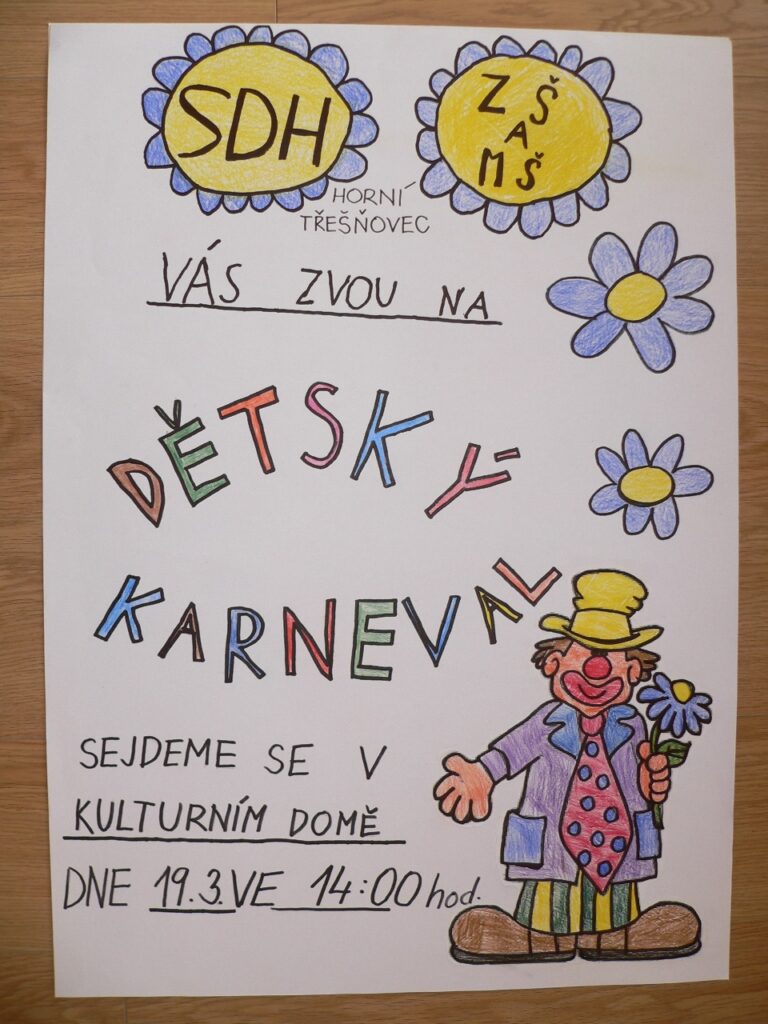 SDH
ZŠ
A
MŠ
HORNÍ
TŘEŠŇOVEC
VÁS ZVOU NA
DĚTSKÝ
KARNEVAL
SEJDEME SE V
KULTURNÍM DOMĚ
DNE 19.3. VE 14:00 hod.